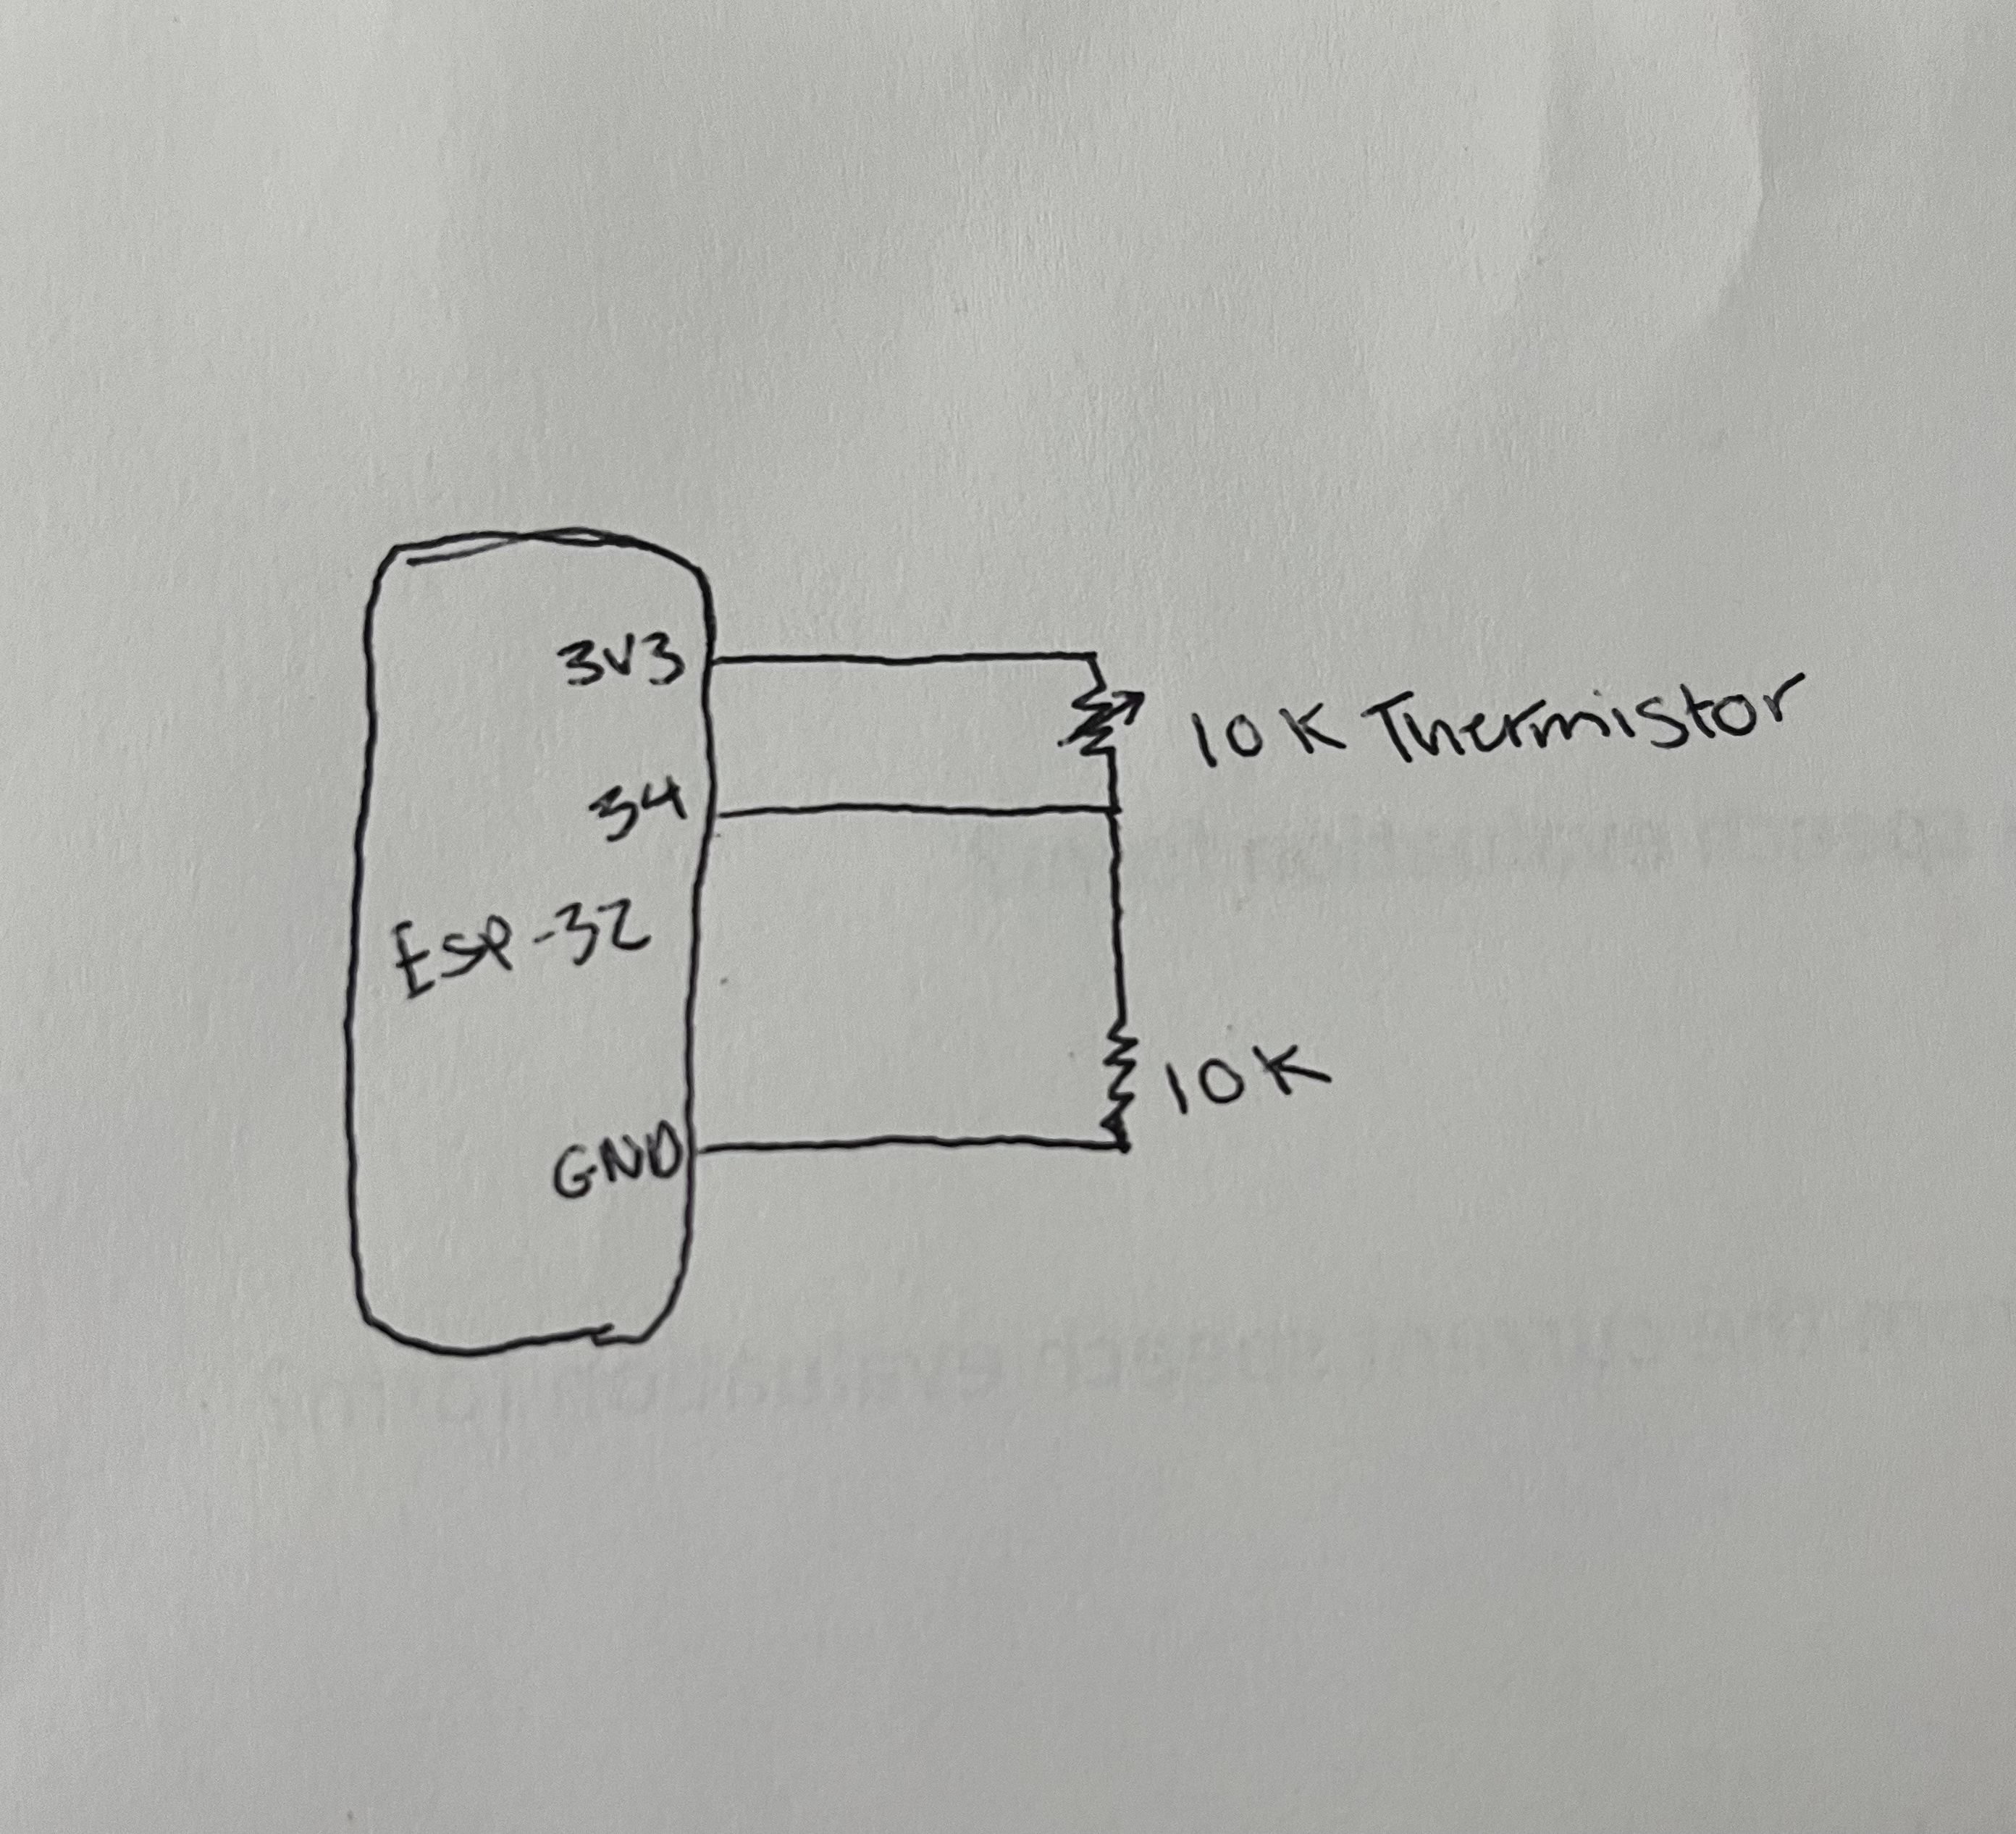 3V3
10K Thermistor
34
ESP-32
10K
GND